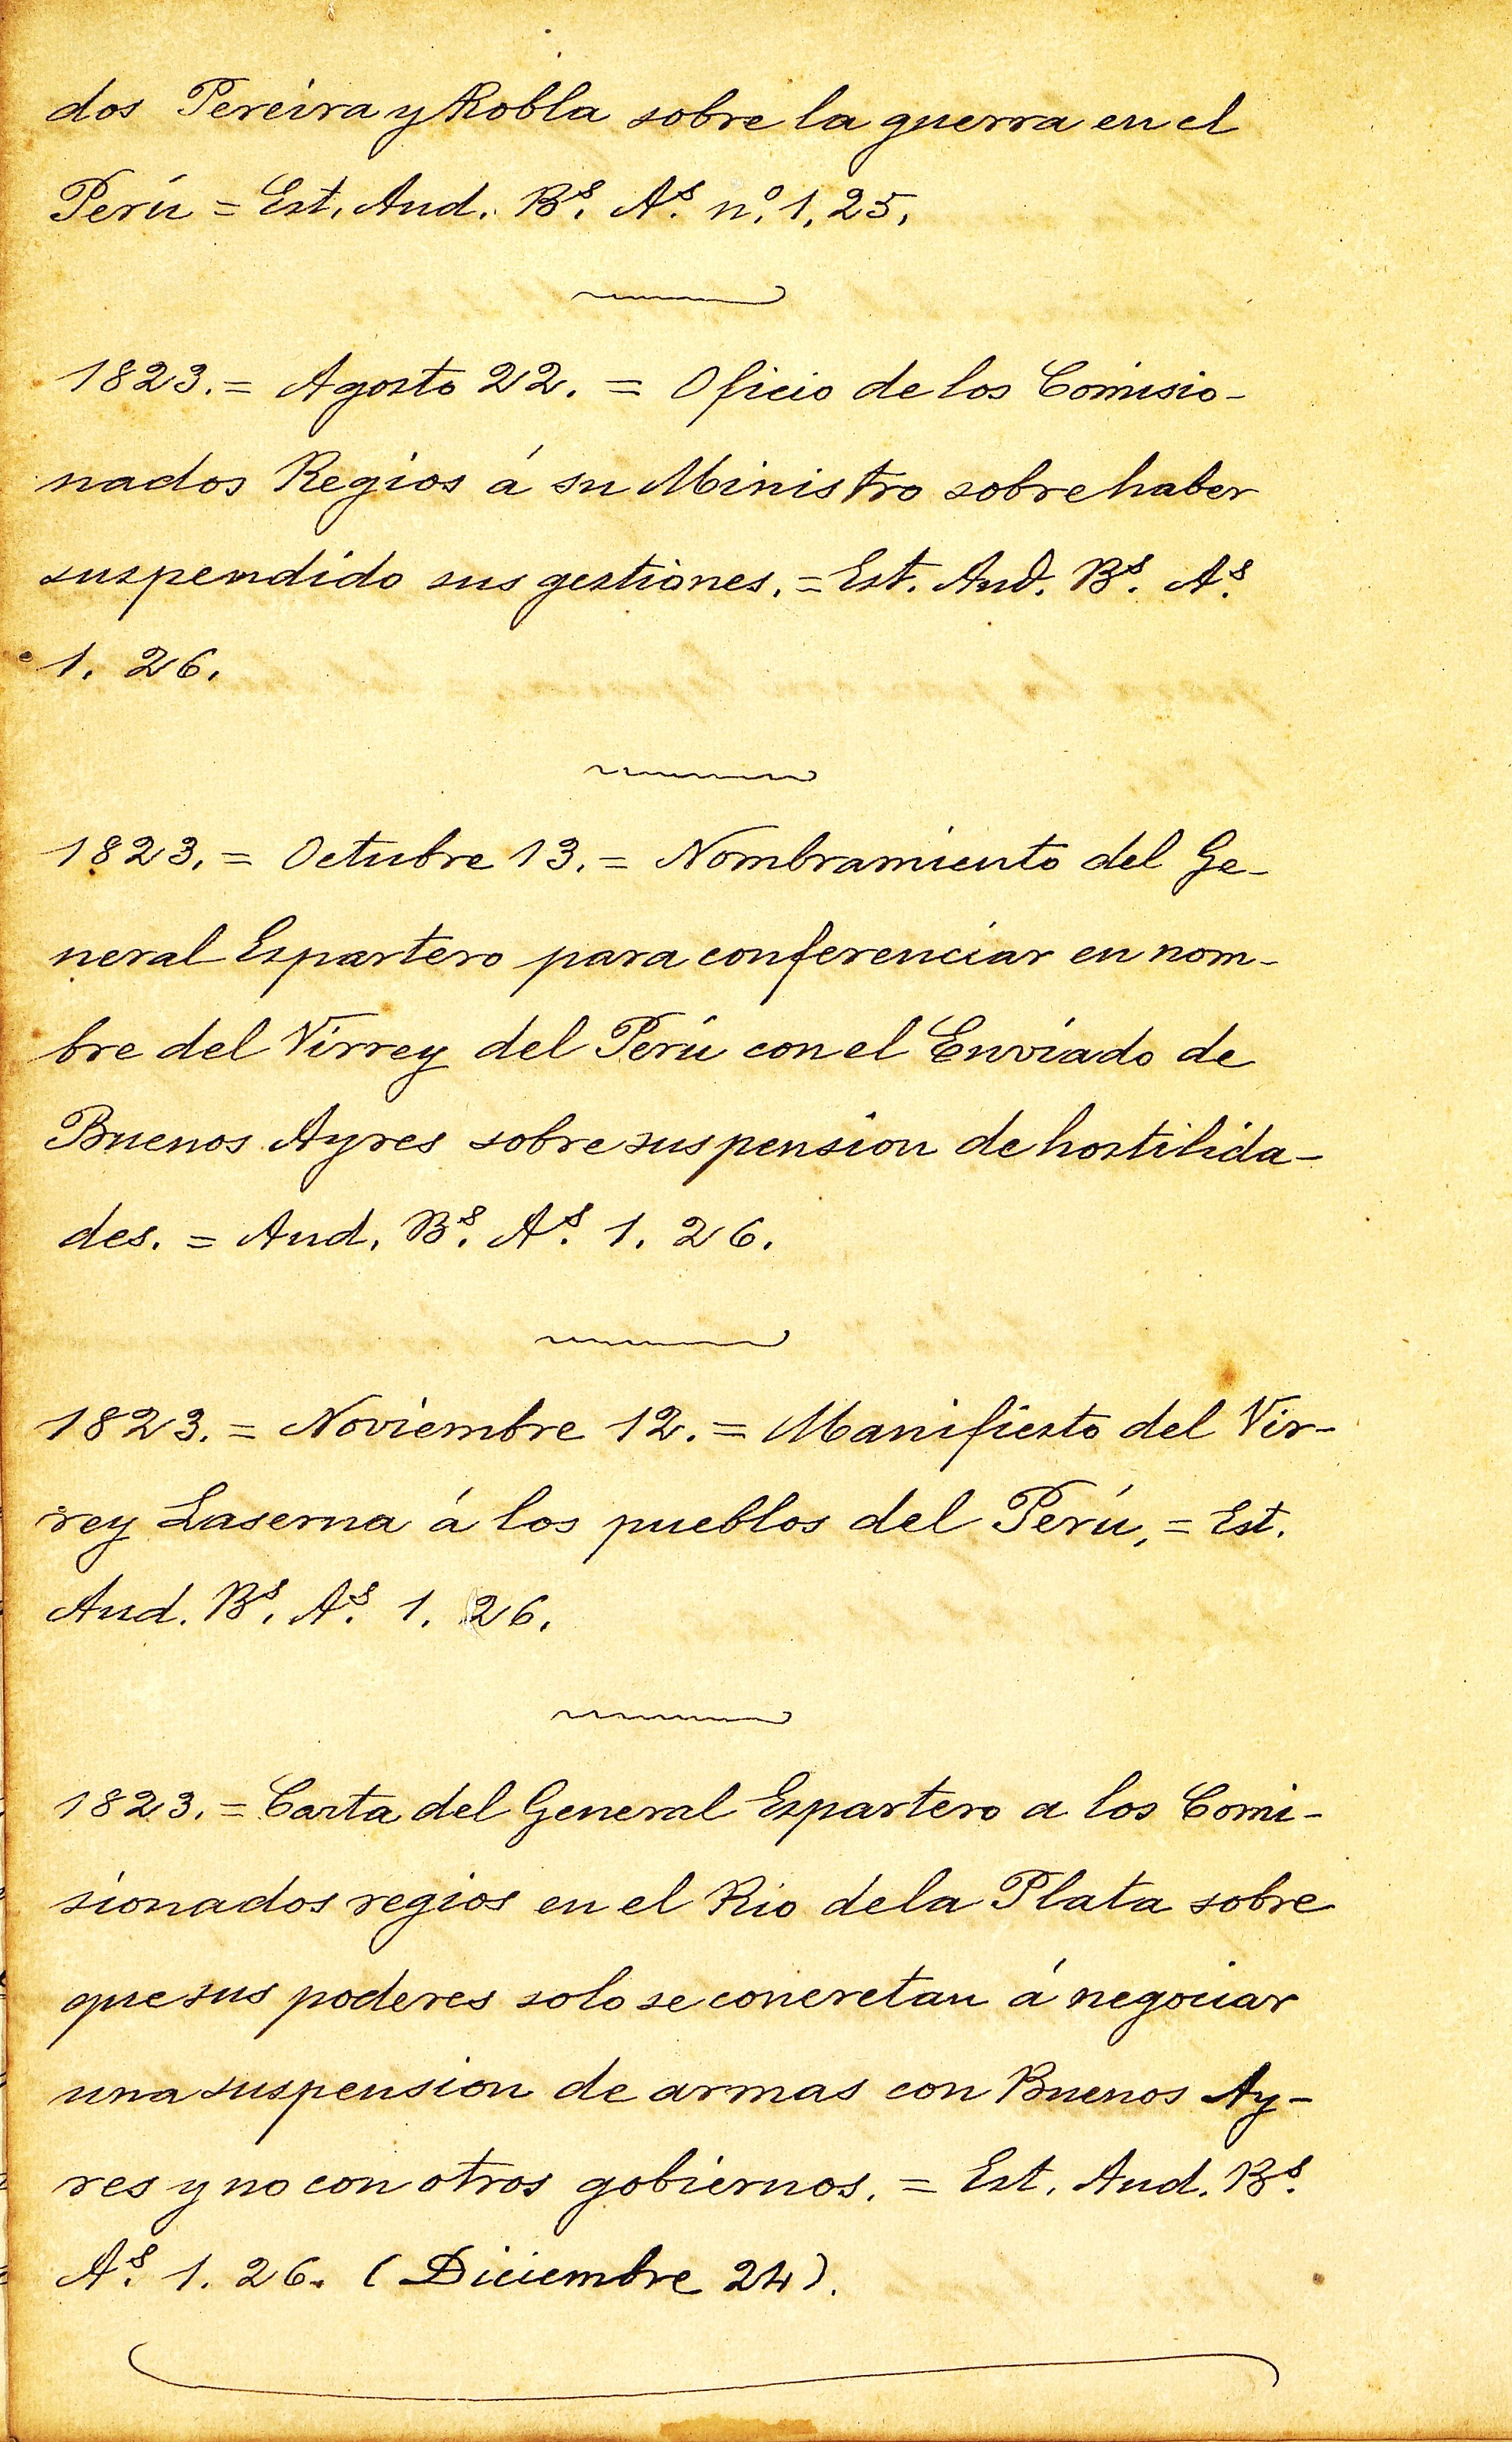 dos Pereira y Robla sobre la guerra en el
Perú = Est. Aud. Bs. As. nº. 1, 25.
1823. = Agosto 22. = Oficio de los Comisio-
nados Regios á su Ministro sobre haber
suspendido sus gestiones. = Est. Aud. Bs. As.
1. 26.
1823. = Octubre 13. = Nombramiento del Ge-
neral Espartero para conferenciar en nom-
bre del Virrey del Perú con el Enviado de
Buenos Ayres sobre suspension de hostilida-
des. = Aud. Bs. As. 1. 26.
1823. = Noviembre 12. = Manifiesto del Vir-
rey Laserna á los pueblos del Perú, = Est.
Aud. Bs. As. 1. 26.
1823. = Carta del General Espartero a los Comi-
sionados regios en el Rio de la Plata sobre
que sus poderes solo se concretan á negociar
una suspension de armas con Buenos Ay-
res y no con otros gobiernos. = Est. Aud. Bs.
As. 1. 26. (Diciembre 24).